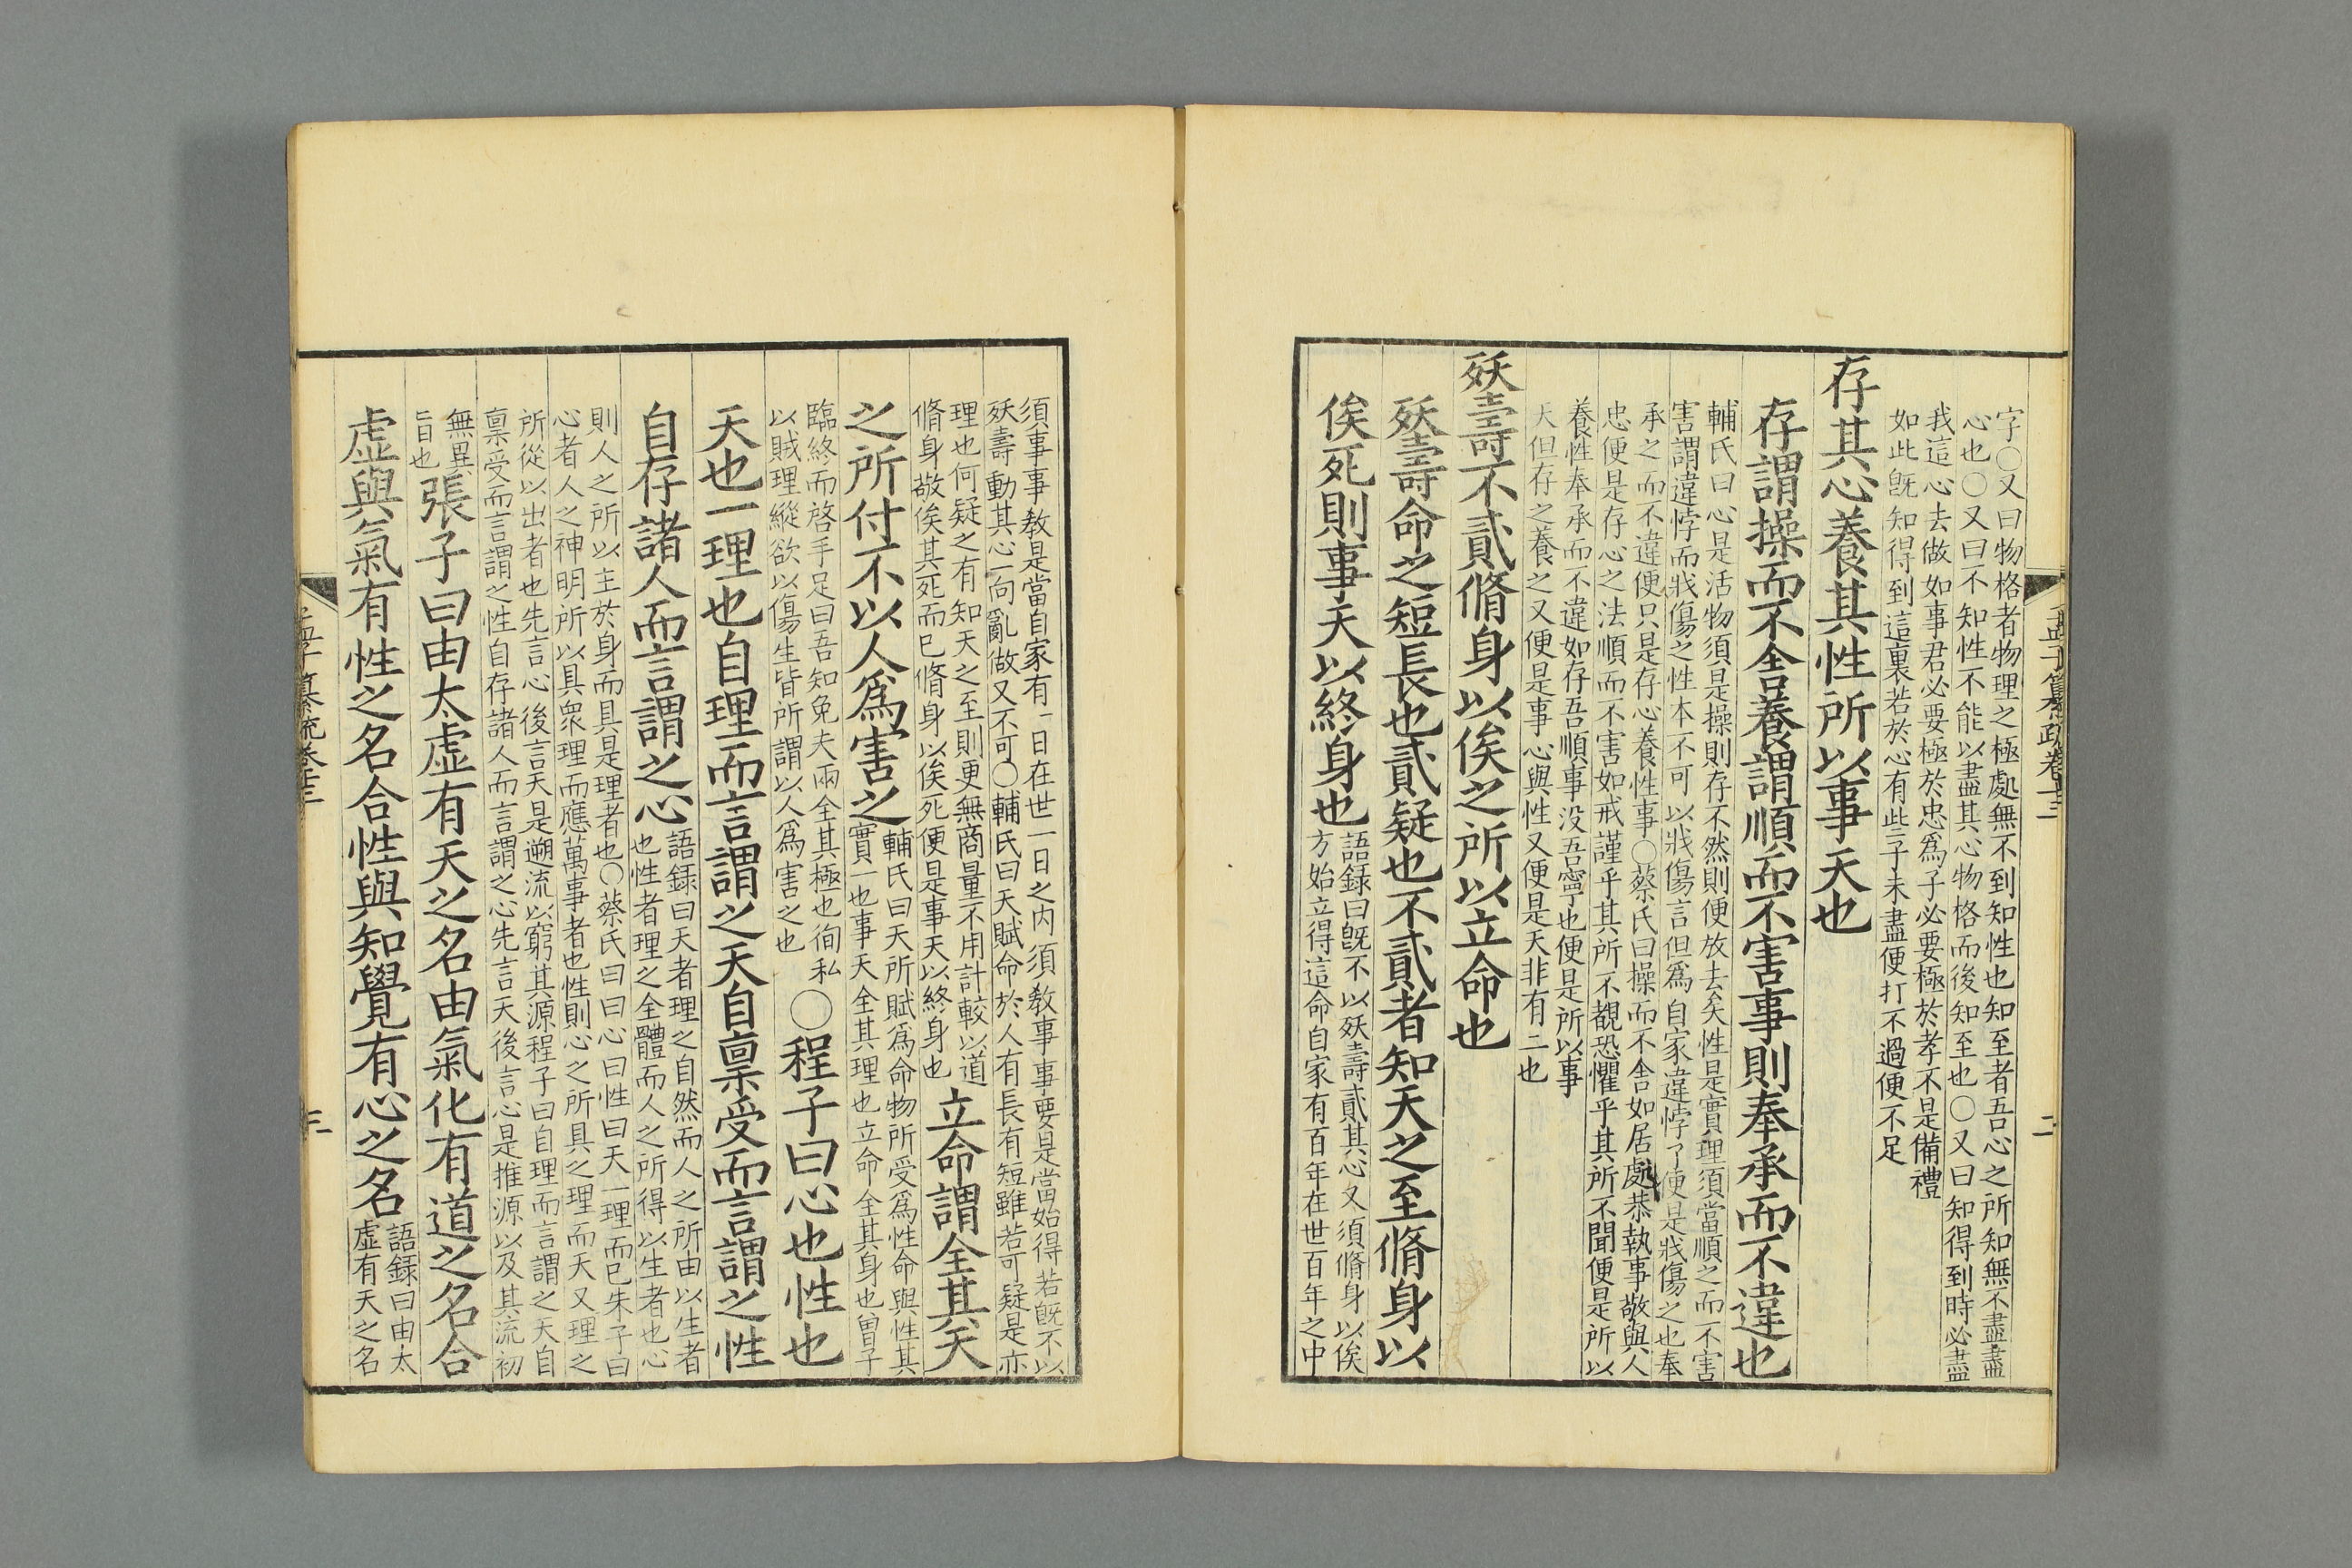 字○又曰物格者物理之極處無不到知性也知至者吾心之所知無不盡盡
心也○又曰不知性不能以盡其心物格而後知至也○又曰知得到時必盡
我這心去做如事君必要極於忠爲子必要極於孝不是備禮
如此旣知得到這裏若於心有些子未盡便打不過便不足
存其心養其性所以事天也
存謂操而不舍養謂順而不害事則奉承而不違也
輔氏曰心是活物須是操則存不然則便放去矣性是實理須當順之而不害
害謂違悖而戕傷之性本不可以戕傷言但爲自家違悖了便是戕傷之也奉
承之而不違便只是存心養性事○蔡氏曰操而不舍如居處恭執事敬與人
忠便是存心之法順而不害如戒謹乎其所不覩恐懼乎其所不聞便是所以
養性奉承而不違如存吾順事没吾寧也便是所以事
天但存之養之又便是事心與性又便是天非有二也
殀壽不貳脩身以俟之所以立命也
殀壽命之短長也貳疑也不貳者知天之至脩身以
俟死則事天以終身也
語録曰旣不以殀壽貳其心又須脩身以俟
方始立得這命自家有百年在世百年之中
孟子纂疏卷十三
二
須事事敎是當自家有一日在世一日之内須敎事事要是當始得若旣不以
殀壽動其心一向亂做又不可○輔氏曰天賦命於人有長有短雖若可疑是亦
理也何疑之有知天之至則更無商量不用計較以道
脩身敬俟其死而已脩身以俟死便是事天以終身也
立命謂全其天
之所付不以人爲害之
輔氏曰天所賦爲命物所受爲性命與性其
實一也事天全其理也立命全其身也曾子
臨終而啓手足曰吾知免夫兩全其極也徇私
以賊理縱欲以傷生皆所謂以人爲害之也
○程子曰心也性也
天也一理也自理而言謂之天自稟受而言謂之性
自存諸人而言謂之心
語録曰天者理之自然而人之所由以生者
也性者理之全體而人之所得以生者也心
則人之所以主於身而具是理者也○蔡氏曰曰心曰性曰天一理而已朱子曰
心者人之神明所以具衆理而應萬事者也性則心之所具之理而天又理之
所從以出者也先言心後言天是遡流以窮其源程子曰自理而言謂之天自
稟受而言謂之性自存諸人而言謂之心先言天後言心是推源以及其流初
無異
旨也
張子曰由太虚有天之名由氣化有道之名合
虚與氣有性之名合性與知覺有心之名
語録曰由太
虚有天之名
孟子纂疏卷十三
三